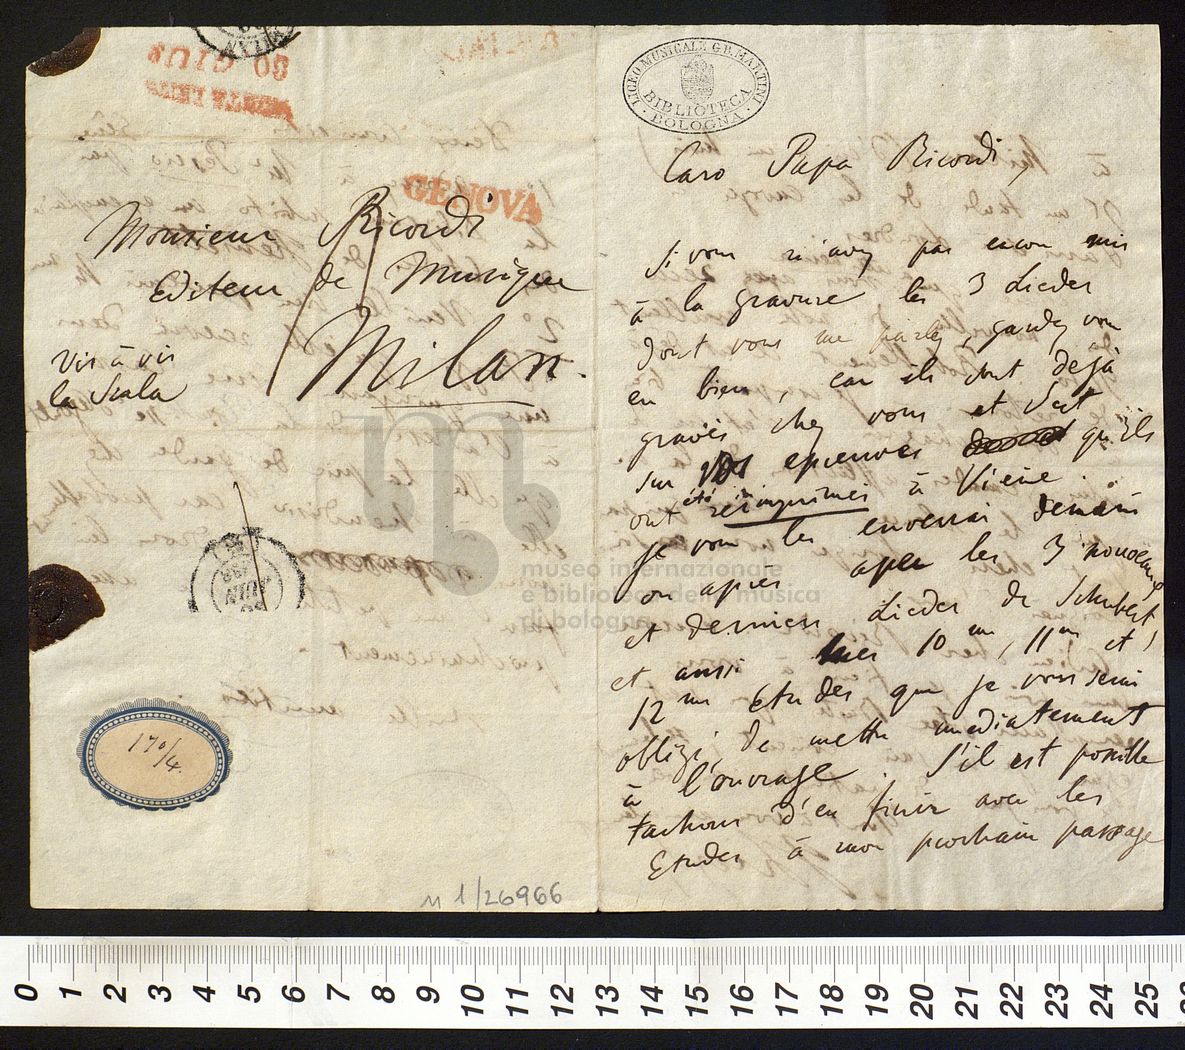 MILAN
30 GIUG
GENOVA
Monsieur Ricordi
Editeur de Musique
Milan.
Vis à vis
la Scala
JUIN
170/4.
n 1/26966
LICEO MUSICALE G.B. MARTINI
BIBLIOTECA
BOLOGNA
Caro Papa Ricordi,
Si vous n'avez pas encore mis
à la gravure les 3 Lieder
dont vous me parlez, gardez vous
en bien, car ils sont dejà
gravés chez vous et c'est
sur vos epreuves qu'ils
ont été reimprimés à Viene.
je vous les enverrai demain
ou après après les 3 nouveaux
et derniers Lieder de Schubert,
et aussi mes 10me, 11me et
12me Etudes que je vous serai
obligé, de mettre imediatement
à l'ouvrage. S'il est possible
tachons d'en finir avec les
Etudes à mon prochain passage
museo internazionale
e biblioteca della musica
di bologna
0 1 2 3 4 5 6 7 8 9 10 11 12 13 14 15 16 17 18 19 20 21 22 23 24 25